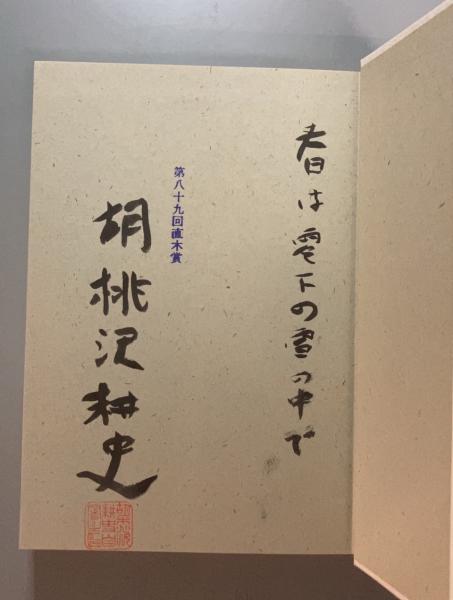 春は零下の雪の中で
第八十九回直木賞
胡桃沢耕史